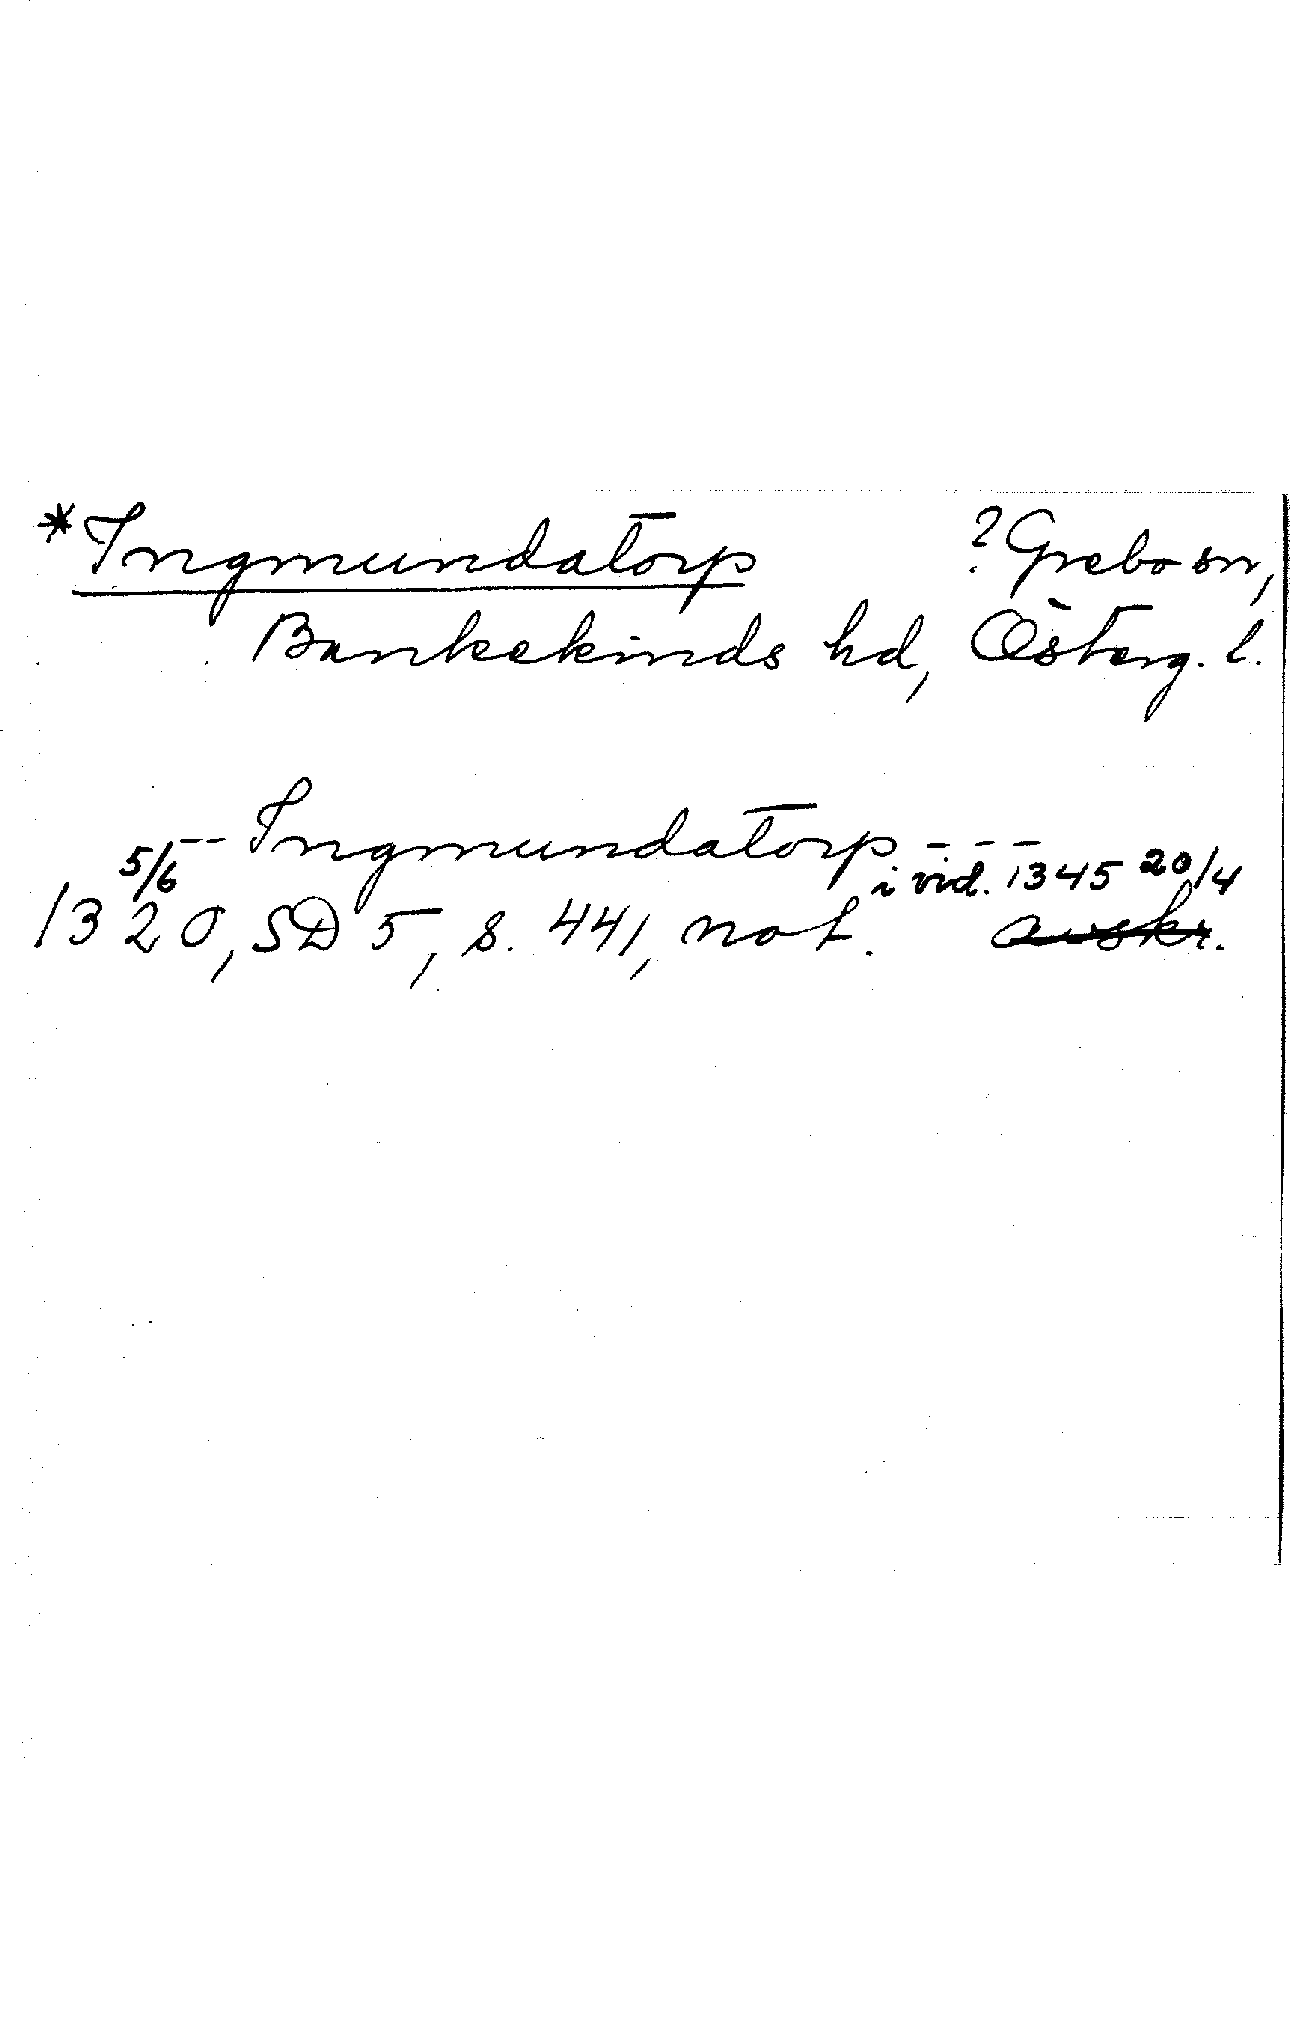 *Ingmundatorp ? Grebo sn,
Bankekinds hd, Österg. l.
-- Ingmundatorp - - -
1320 5/6, SD 5, s. 441, not. i vid. 1345 20/4
avskr.